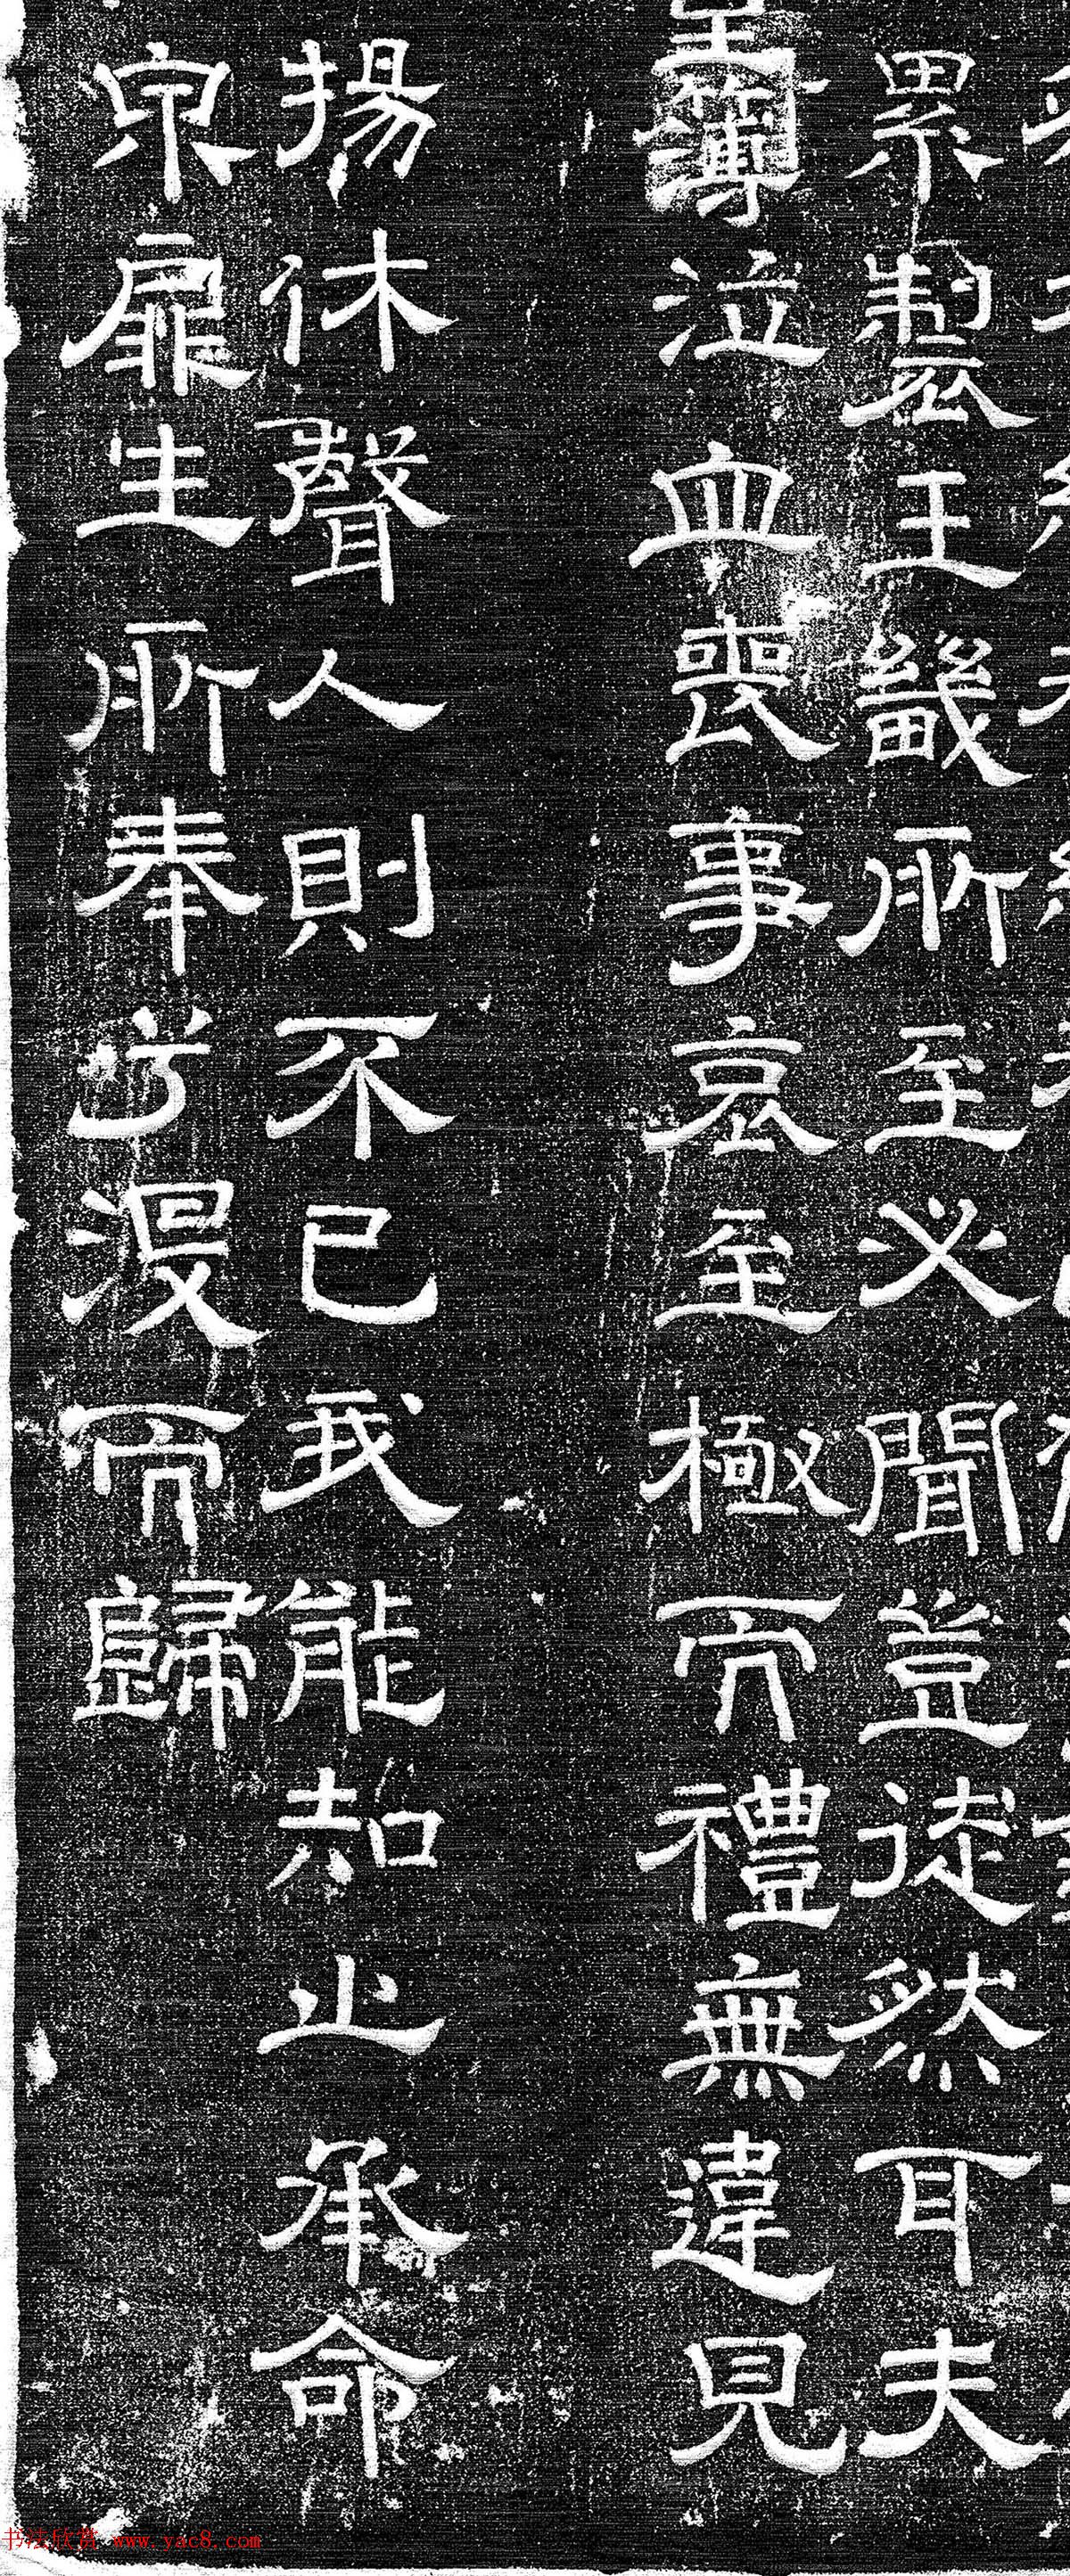 累製王畿所至必聞豈徒然耳夫
主簿泣血喪事哀至極而禮無違見
揚休聲人則不已我能知止承命
泉扉生所奉兮沒而歸
书法欣赏 www.yac8.com